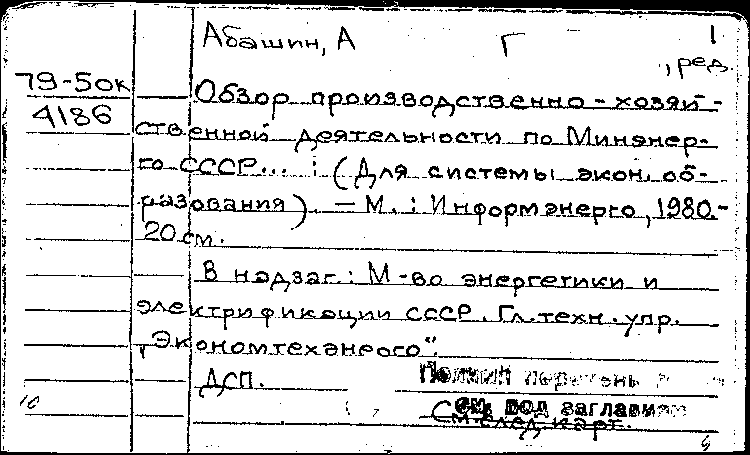 Абашин, А Г 1
, ред.
79-50к
4186
Обзор производственно-хозяй-
ственной деятельности по Минэнер-
го СССР... : (Для системы экон. об-
разования). — М. : Информэнерго, 1980-
20 см.
В надзаг.: М-во энергетики и
электрификации СССР. Гл. техн. упр.
„Экономтехэнерго".
ДСП.
Полный перечень
см. под заглавием
См. след. карт.
10